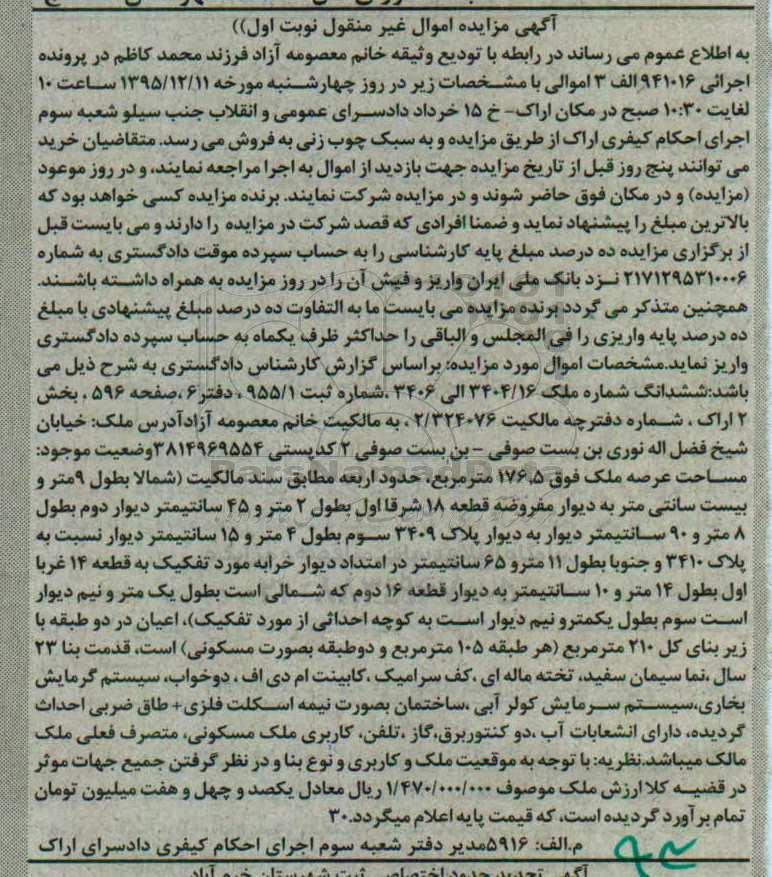 آگهی مزایده اموال غیر منقول نوبت اول))
به اطلاع عموم می رساند در رابطه با تودیع وثیقه خانم معصومه آزاد فرزند محمد کاظم در پرونده
اجرائی ۹۴۱۰۱۶ الف ۳ اموالی با مشخصات زیر در روز چهارشنبه مورخه ۱۳۹۵/۱۲/۱۱ ساعت ۱۰
لغایت ۱۰:۳۰ صبح در مکان اراک- خ ۱۵ خرداد دادسرای عمومی و انقلاب جنب سیلو شعبه سوم
اجرای احکام کیفری اراک از طریق مزایده و به سبک چوب زنی به فروش می رسد. متقاضیان خرید
می توانند پنج روز قبل از تاریخ مزایده جهت بازدید از اموال به اجرا مراجعه نمایند، و در روز موعود
(مزایده) و در مکان فوق حاضر شوند و در مزایده شرکت نمایند. برنده مزایده کسی خواهد بود که
بالاترین مبلغ را پیشنهاد نماید و ضمنا افرادی که قصد شرکت در مزایده را دارند و می بایست قبل
از برگزاری مزایده ده درصد مبلغ پایه کارشناسی را به حساب سپرده موقت دادگستری به شماره
۲۱۷۱۲۹۵۳۱۰۰۰۶ نزد بانک ملی ایران واریز و فیش آن را در روز مزایده به همراه داشته باشند.
همچنین متذکر می گردد برنده مزایده می بایست ما به التفاوت ده درصد مبلغ پیشنهادی با مبلغ
ده درصد پایه واریزی را فی المجلس و الباقی را حداکثر ظرف یکماه به حساب سپرده دادگستری
واریز نماید.مشخصات اموال مورد مزایده: براساس گزارش کارشناس دادگستری به شرح ذیل می
باشد:ششدانگ شماره ملک ۳۴۰۴/۱۶ الی ۳۴۰۶ ،شماره ثبت ۹۵۵/۱ ، دفتر۶ ،صفحه ۵۹۶ ، بخش
۲ اراک ، شماره دفترچه مالکیت ۲/۳۲۴۰۷۶ ، به مالکیت خانم معصومه آزادآدرس ملک: خیابان
شیخ فضل اله نوری بن بست صوفی – بن بست صوفی ۲ کدپستی ۳۸۱۴۹۶۹۵۵۴وضعیت موجود:
مساحت عرصه ملک فوق ۱۷۶٫۵ مترمربع، حدود اربعه مطابق سند مالکیت (شمالا بطول ۹متر و
بیست سانتی متر به دیوار مفروضه قطعه ۱۸ شرقا اول بطول ۲ متر و ۴۵ سانتیمتر دیوار دوم بطول
۸ متر و ۹۰ سانتیمتر دیوار به دیوار پلاک ۳۴۰۹ سوم بطول ۴ متر و ۱۵ سانتیمتر دیوار نسبت به
پلاک ۳۴۱۰ و جنوبا بطول ۱۱ مترو ۶۵ سانتیمتر در امتداد دیوار خرابه مورد تفکیک به قطعه ۱۴ غربا
اول بطول ۱۴ متر و ۱۰ سانتیمتر به دیوار قطعه ۱۶ دوم که شمالی است بطول یک متر و نیم دیوار
است سوم بطول یکمترو نیم دیوار است به کوچه احداثی از مورد تفکیک)، اعیان در دو طبقه با
زیر بنای کل ۲۱۰ مترمربع (هر طبقه ۱۰۵ مترمربع و دوطبقه بصورت مسکونی) است، قدمت بنا ۲۳
سال ،نما سیمان سفید، تخته ماله ای ،کف سرامیک ،کابینت ام دی اف ، دوخواب، سیستم گرمایش
بخاری،سیستم سرمایش کولر آبی ،ساختمان بصورت نیمه اسکلت فلزی+ طاق ضربی احداث
گردیده، دارای انشعابات آب ،دو کنتوربرق،گاز ،تلفن، کاربری ملک مسکونی، متصرف فعلی ملک
مالک میباشد.نظریه: با توجه به موقعیت ملک و کاربری و نوع بنا و در نظر گرفتن جمیع جهات موثر
در قضیه کلا ارزش ملک موصوف ۱/۴۷۰/۰۰۰/۰۰۰ ریال معادل یکصد و چهل و هفت میلیون تومان
تمام برآورد گردیده است، که قیمت پایه اعلام میگردد.۳۰
م.الف: ۵۹۱۶مدیر دفتر شعبه سوم اجرای احکام کیفری دادسرای اراک
آگهی تحدید حدود اختصاصی ثبت شهرستان خرم آباد